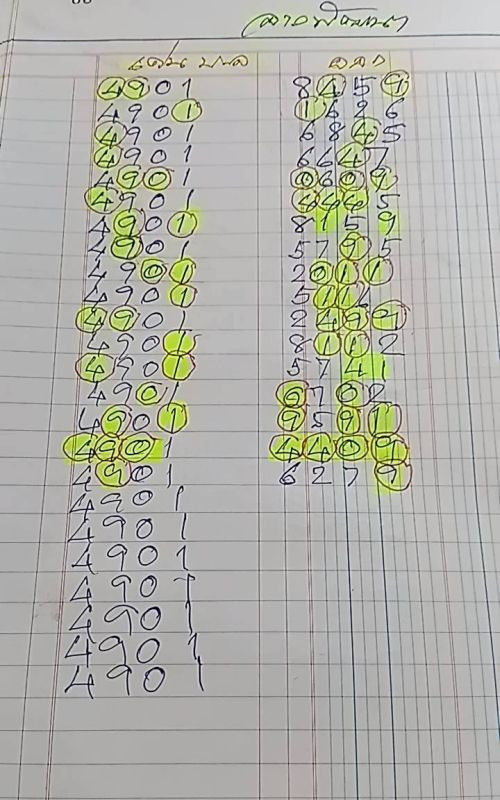 ลาวพัฒนา
เด่น บน ออก
4901 8459
4901 1626
4901 6845
4901 6647
4901 0609
4901 4445
4901 8159
4901 5795
4901 2011
4901 511
4901 2499
4901 8112
4901 5741
4901 6702
4901 9591
4901 4409
4901 6279
4901
4901
4901
4901
4901
4901
4901